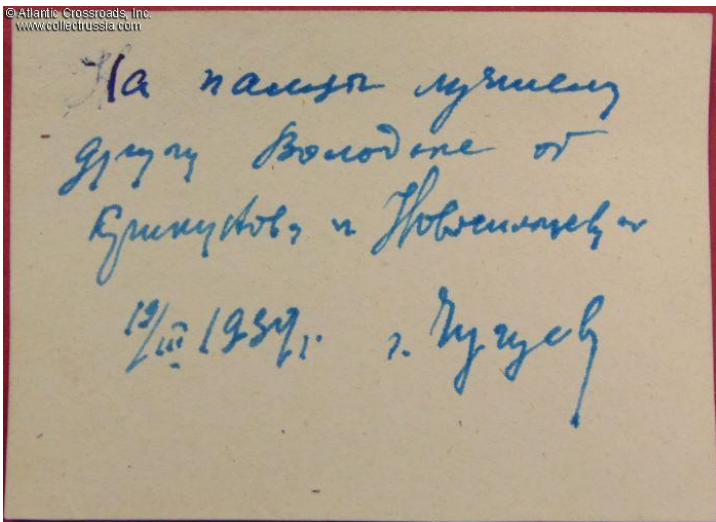 © Atlantic Crossroads, Inc.
www.collectrussia.com
На память лучшему
другу Володьке от
и Новосильцева
19/III 1939 г. г. Чугуев